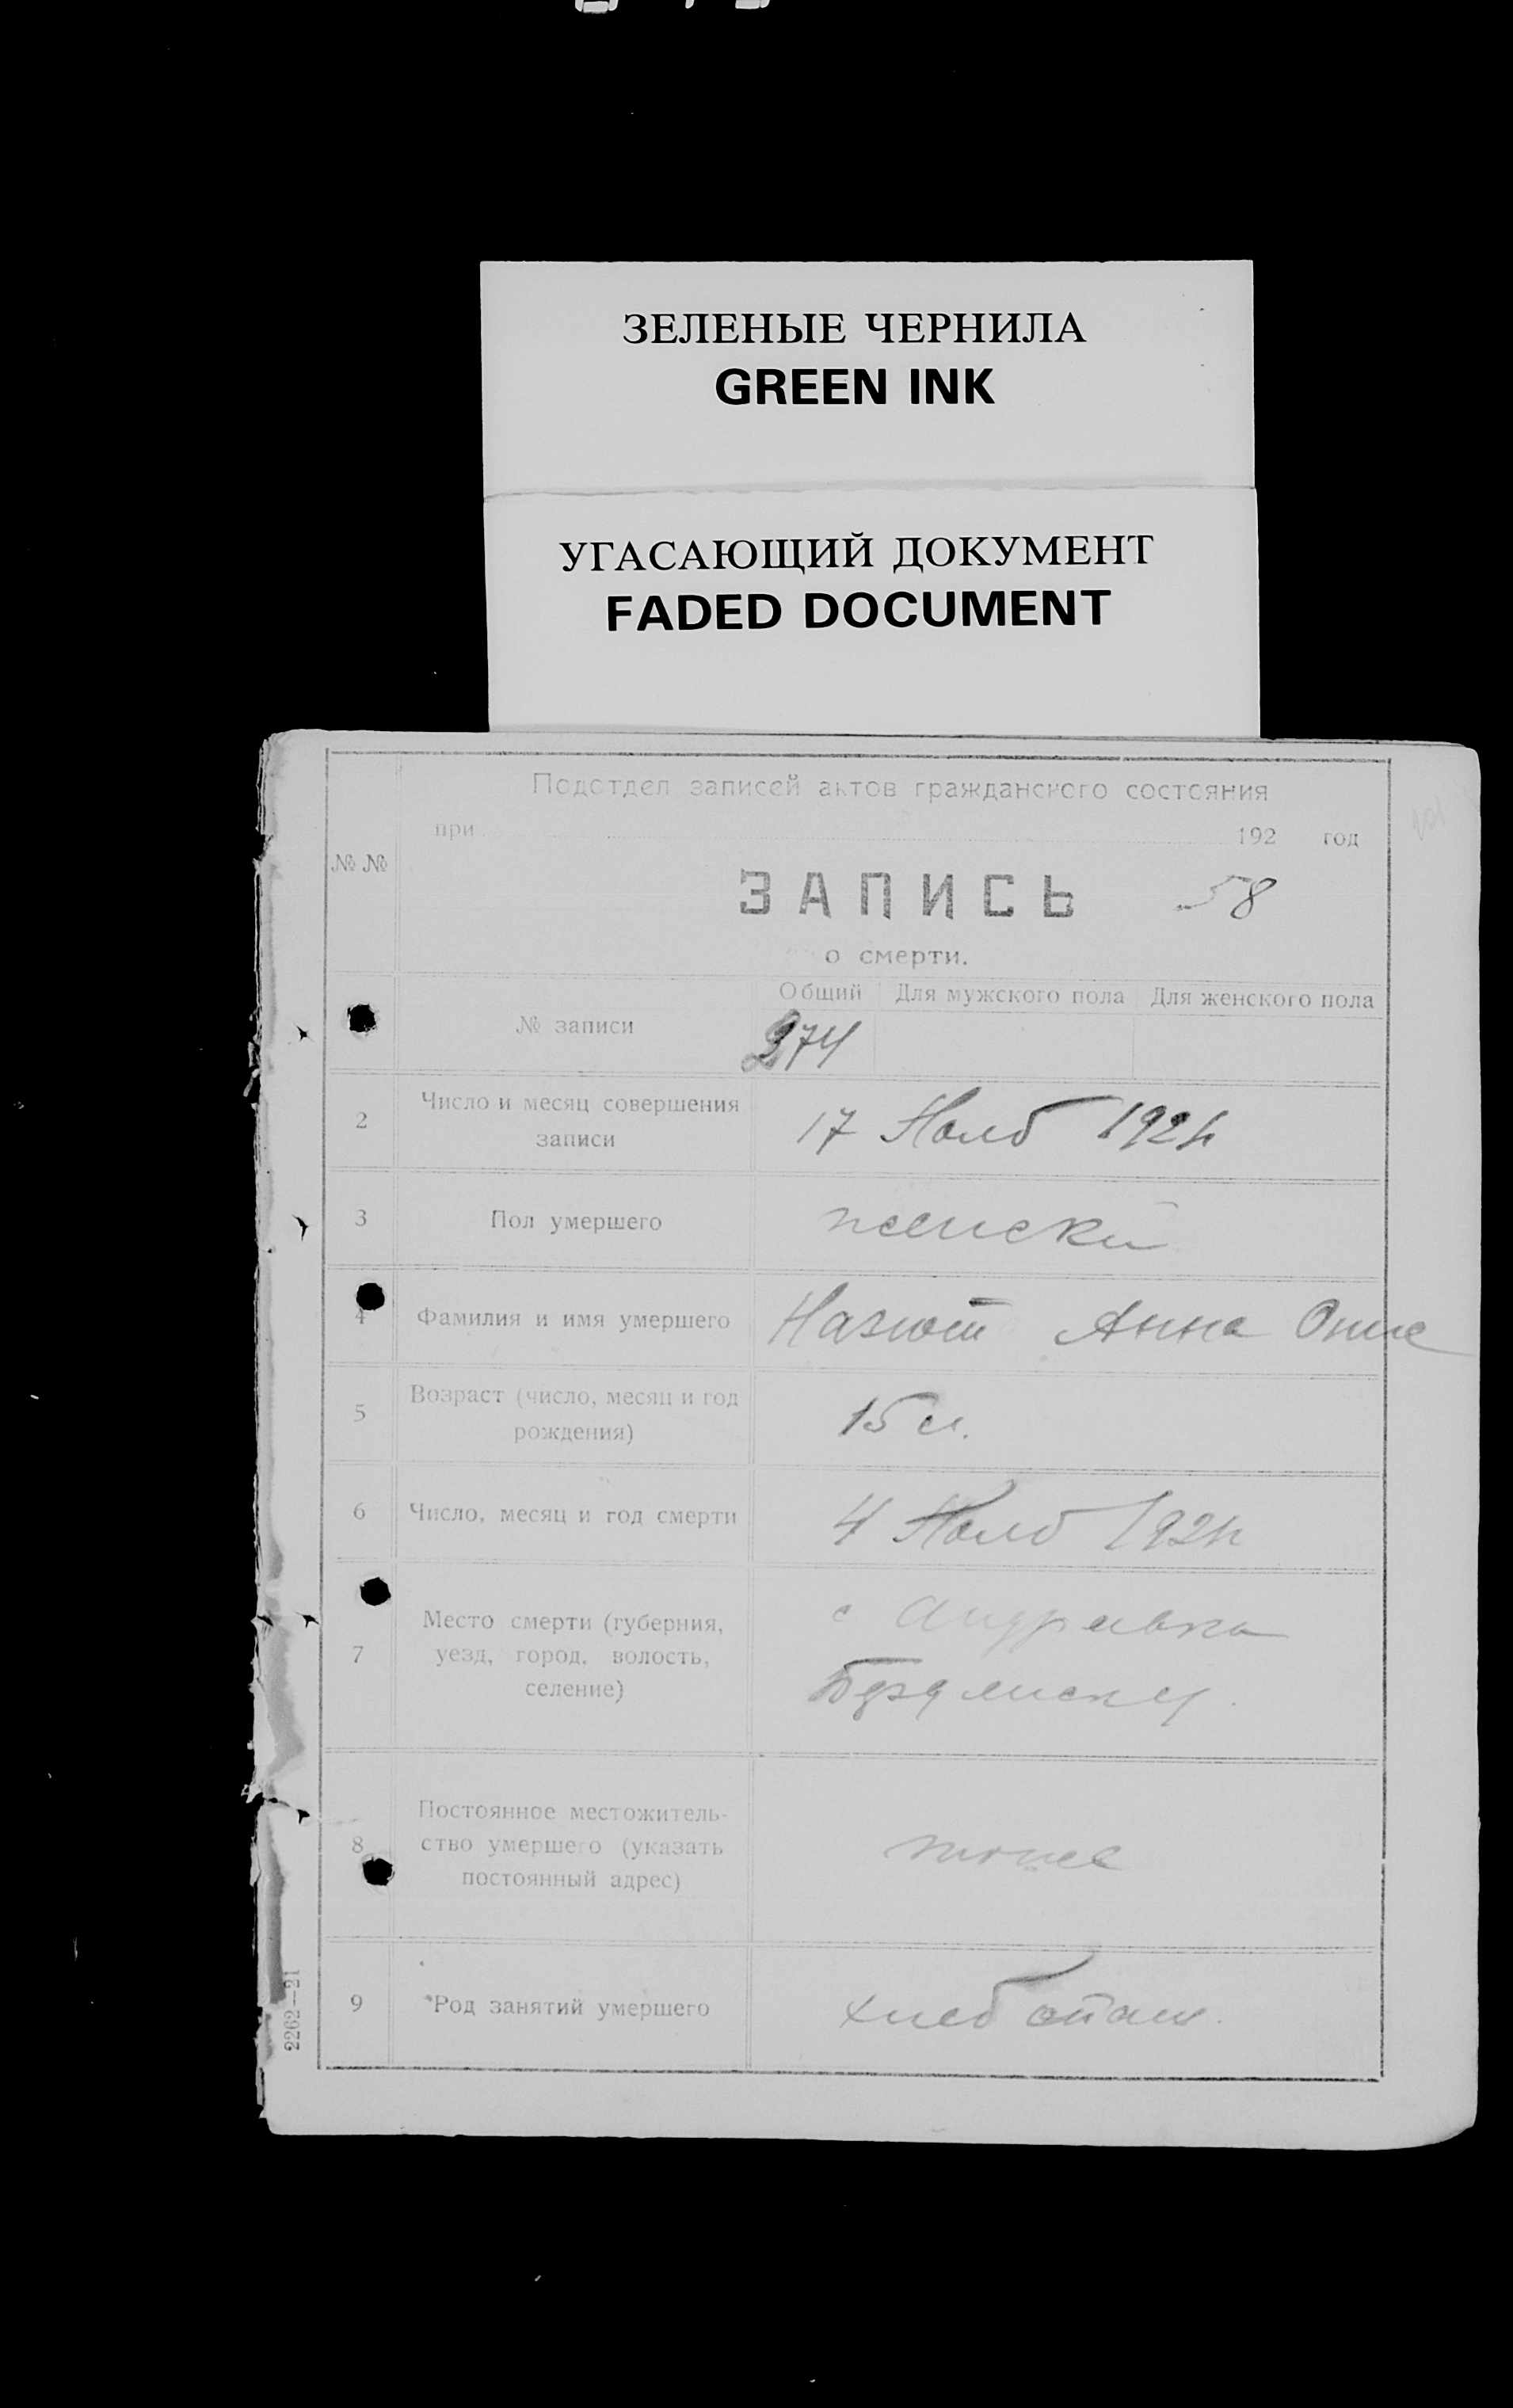 ЗЕЛЕНЫЕ ЧЕРНИЛА
GREEN INK
УГАСАЮЩИЙ ДОКУМЕНТ
FADED DOCUMENT
Подотдел записей актов гражданского состояния
при 192 год
№ №
ЗАПИСЬ 58
о смерти.
Общий Для мужского пола Для женского пола
№ записи 274
2 Число и месяц совершения
записи
17 Нояб 192
3 Пол умершего женски
4 Фамилия и имя умершего Анна
5 Возраст (число, месяц и год
рождения)
15
6 Число, месяц и год смерти 4 Нояб 192
7 Место смерти (губерния,
уезд, город, волость,
селение)
с Андреевка
8 Постоянное местожитель-
ство умершего (указать
постоянный адрес)
тоже
9 Род занятий умершего
2262—21